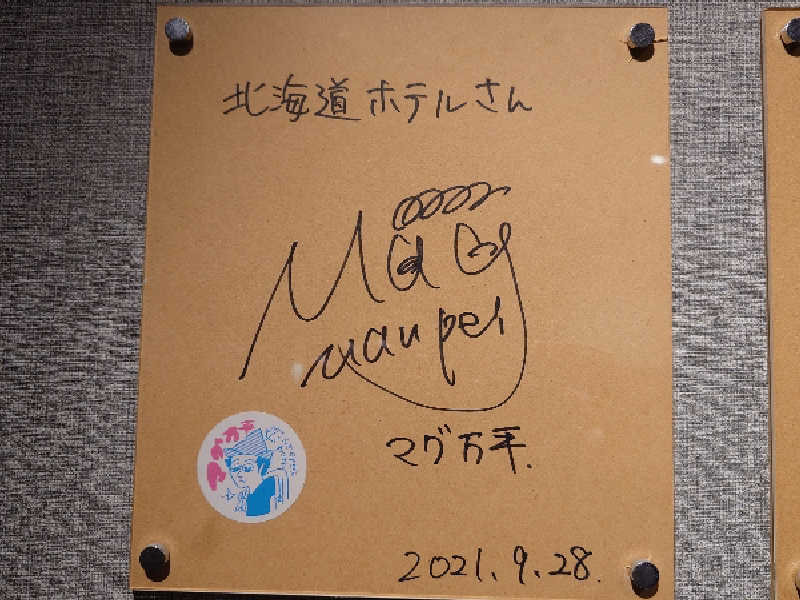 北海道ホテルさん
Mag
manpei
マグ万平.
2021.9.28.